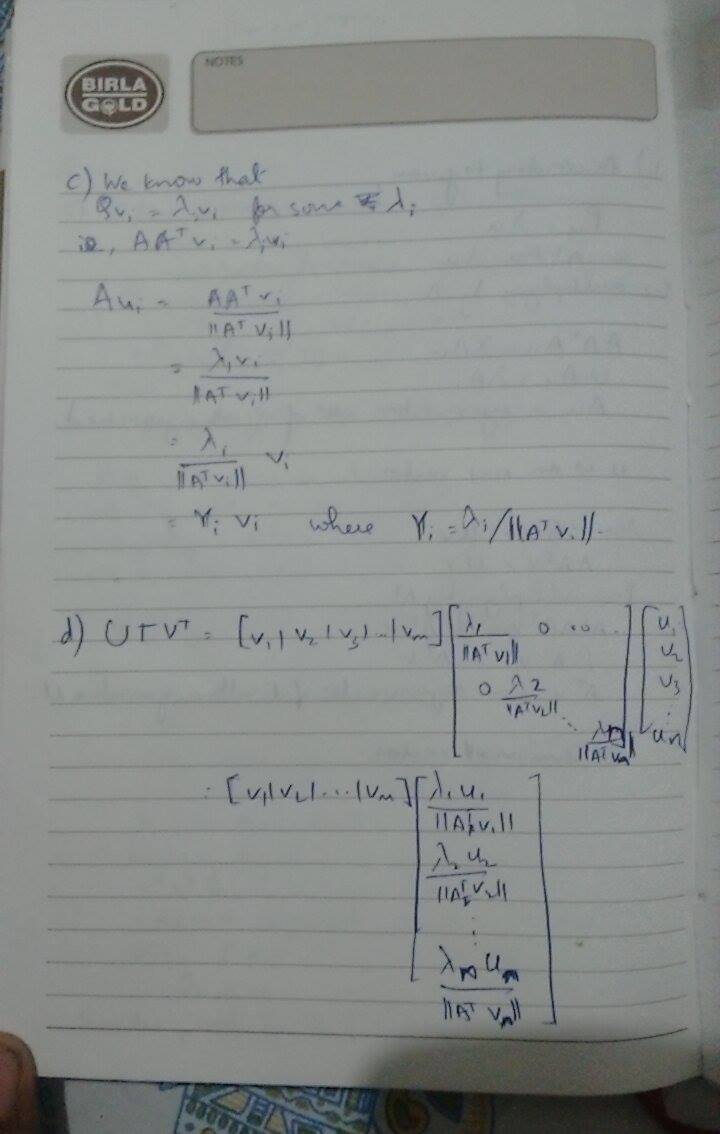 BIRLA
GOLD
NOTES
c) We know that
Qvᵢ = λᵢvᵢ for some λᵢ
ie, AAᵀvᵢ = λᵢvᵢ
Auᵢ = AAᵀvᵢ / ||Aᵀvᵢ||
= λᵢvᵢ / ||Aᵀvᵢ||
= λᵢ / ||Aᵀvᵢ|| vᵢ
= γᵢ vᵢ where γᵢ = λᵢ/||Aᵀvᵢ||.
d) UΓVᵀ = [v₁| v₂ | v₃| ... |vₘ] [λ₁ / ||Aᵀv₁|| 0 ... 0 λ₂ / ||Aᵀv₂|| ... λₘ / ||Aᵀvₘ||] [u₁ u₂ u₃ ⋮ uₘ]
= [v₁|v₂| ... |vₘ] [λ₁u₁ / ||Aᵀv₁||
λ₂u₂ / ||Aᵀv₂||
⋮
λₘuₘ / ||Aᵀvₘ||]